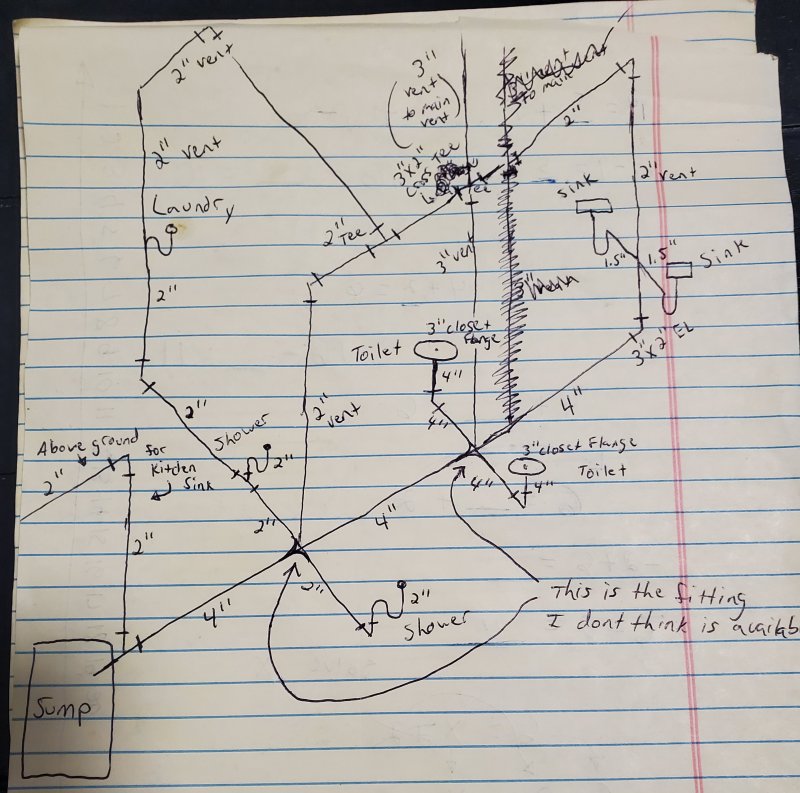 2" vent
3"
vent
to main
vent
2"
2" vent
3"x2"
Cross Tee
2" vent
Sink
Laundry
2" Tee
3" vent
1.5"
1.5"
Sink
2"
3" main
3" closet
Flange
Toilet
3"x2" EL
4"
4"
2"
2"
vent
4"
Shower
2"
3" closet Flange
Toilet
4"
4"
Above ground
for
Kitchen
Sink
2"
2"
2"
4"
2"
4"
2"
Shower
This is the fitting
I dont think is availab
Sump